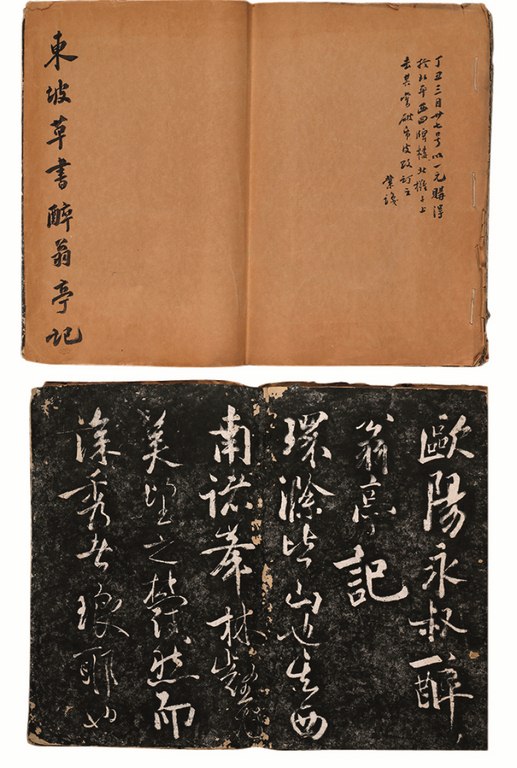 丁丑三月廿七号以一元購得
於北平西四牌楼北攤子上
去其破布皮改訂之
東坡草書醉翁亭記
歐陽永叔醉
翁亭記
環滁皆山也其西
南諸峯林壑尤
美望之蔚然而
深秀者琅耶也